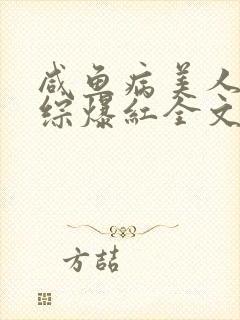 咸鱼病美人
综爆红全文
方喆